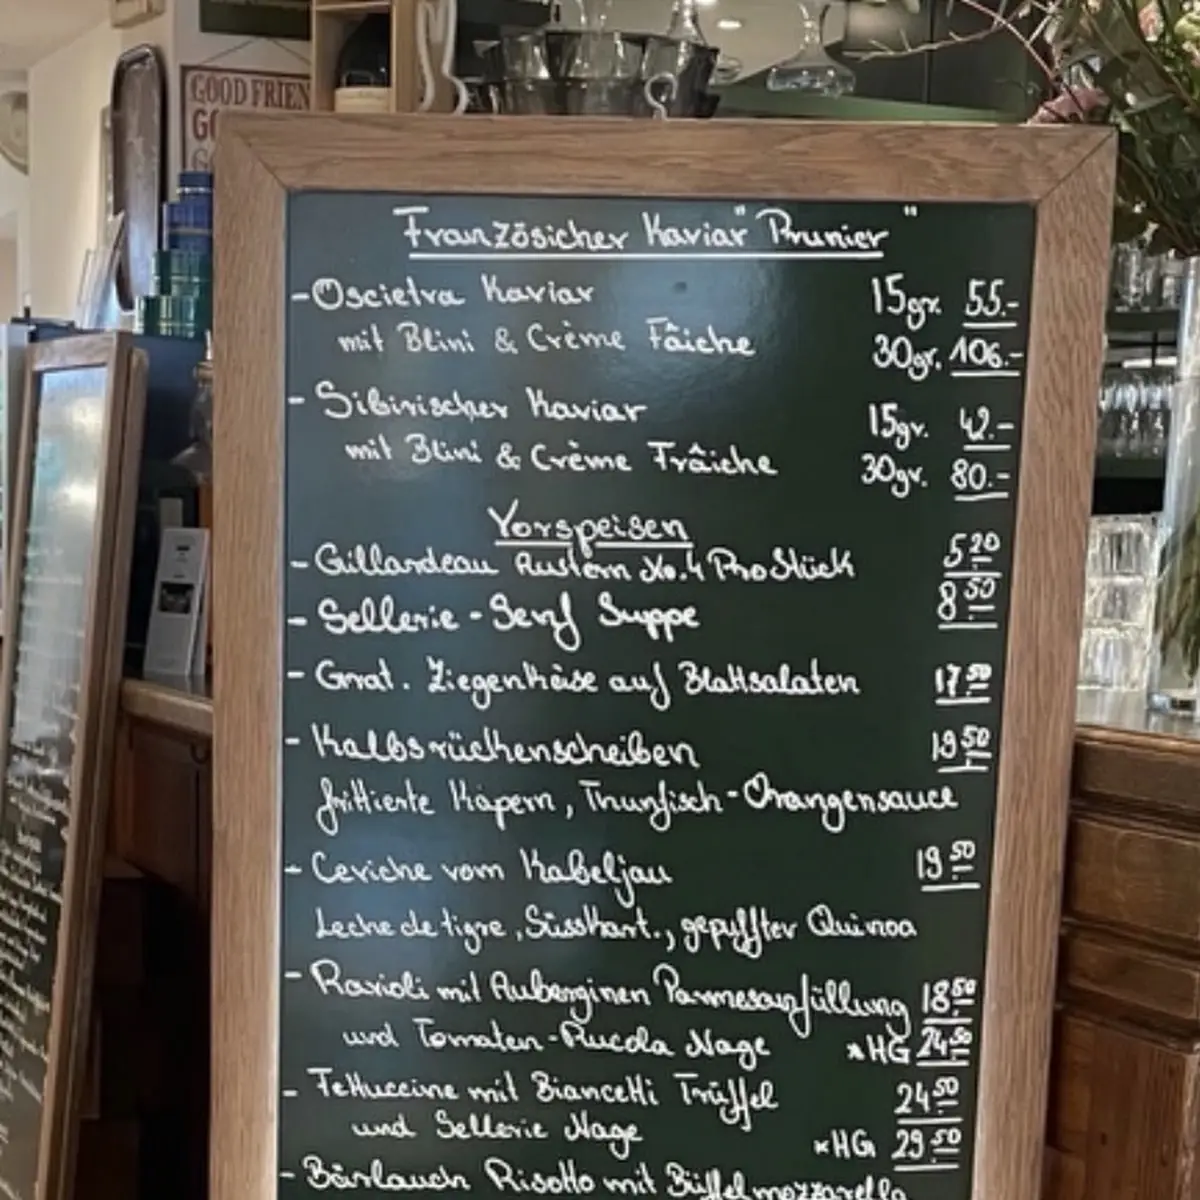 GOOD FRIEN
Französicher Kaviar "Prunier"
- Oscietra Kaviar 15gr. 55.-
mit Blini & Crème Fâiche 30gr. 106.-
- Sibirischer Kaviar 15gr. 42.-
mit Blini & Crème Frâiche 30gr. 80.-
Vorspeisen
- Gillardeau Austern No.4 Pro Stück 5.20
- Sellerie - Senf Suppe 8.50
- Grat. Ziegenkäse auf Blattsalaten 17.50
- Kalbsrückenscheiben 19.50
frittierte Kapern, Thunfisch - Orangensauce
- Ceviche vom Kabeljau 19.50
Leche de tigre, Süsskart., gepuffter Quinoa
- Ravioli mit Auberginen Parmesanfüllung 18.50
und Tomaten-Rucola Nage *HG 24.50
- Fettuccine mit Biancetti Trüffel 24.50
und Sellerie Nage *HG 29.50
- Bärlauch Risotto mit Büffelmozzarella